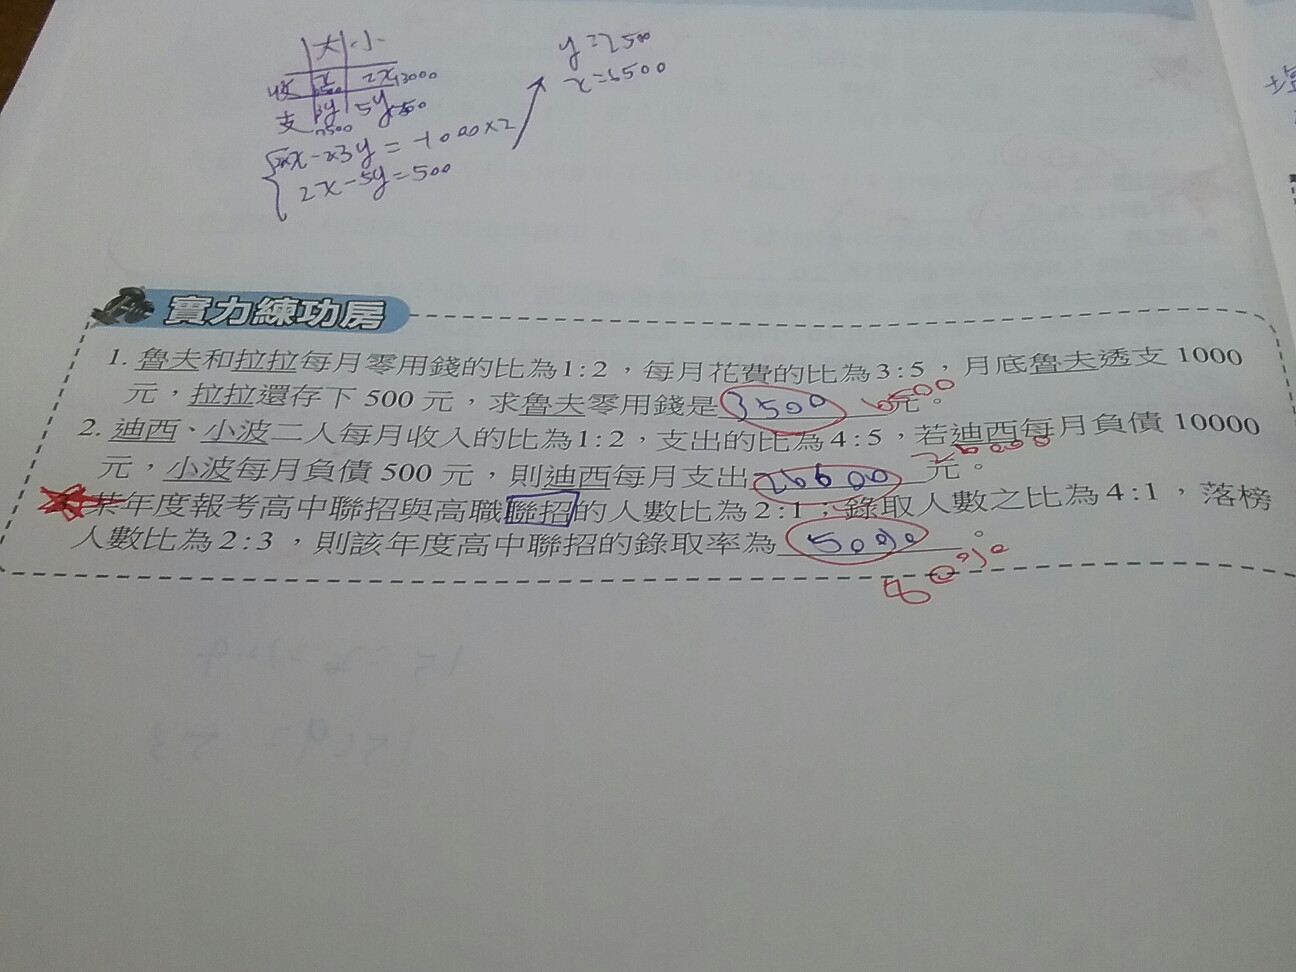 大 小
收 x 2x 13000
支 3y 5y
y=2500
x=6500
x-3y=-1000×2
2x-5y=500
實力練功房
1. 魯夫和拉拉每月零用錢的比為1:2，每月花費的比為3:5，月底魯夫透支1000
元，拉拉還存下500元，求魯夫零用錢是 3500 6500 元。
2. 迪西、小波二人每月收入的比為1:2，支出的比為4:5，若迪西每月負債10000
元，小波每月負債500元，則迪西每月支出 26600 元。
某年度報考高中聯招與高職聯招的人數比為2:1；錄取人數之比為4:1，落榜
人數比為2:3，則該年度高中聯招的錄取率為 50% 。
80%